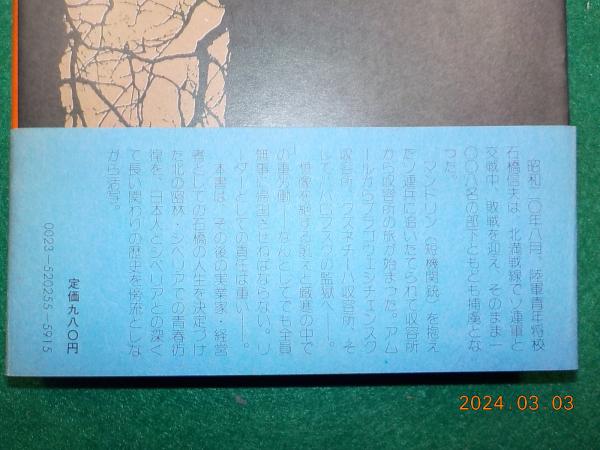 昭和二〇年八月、陸軍青年将校
石橋信夫は、北満戦線でソ連軍と
交戦中、敗戦を迎え、そのまま一
〇〇八名の部下ともども捕虜とな
った。
マンドリン(短機関銃)を抱え
たソ連兵に追いたてられて収容所
から収容所の旅が始まった。アム
ールからブラゴヴェシチェンスク
収容所、クズネチーハ収容所、そ
してハバロフスクの監獄へ……。
極寒を
の重労働――なんとしてでも全員
無事に帰国させねばならない。リ
ーダーとしての責任は重い――。
本書は、その後の実業家・経営
者としての石橋の人生を決定づけ
た北の密林・シベリアでの青春彷
徨を、日本人とシベリアとの深く
て長い関わりの歴史を傍流としな
がら活写。
定価九八〇円
0023-520255-5915
2024.03.03